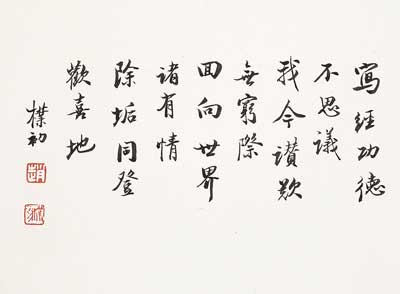 寫經功德
不思議
我今讃歎
無窮際
回向世界
諸有情
除垢同登
歡喜地
樸初
趙